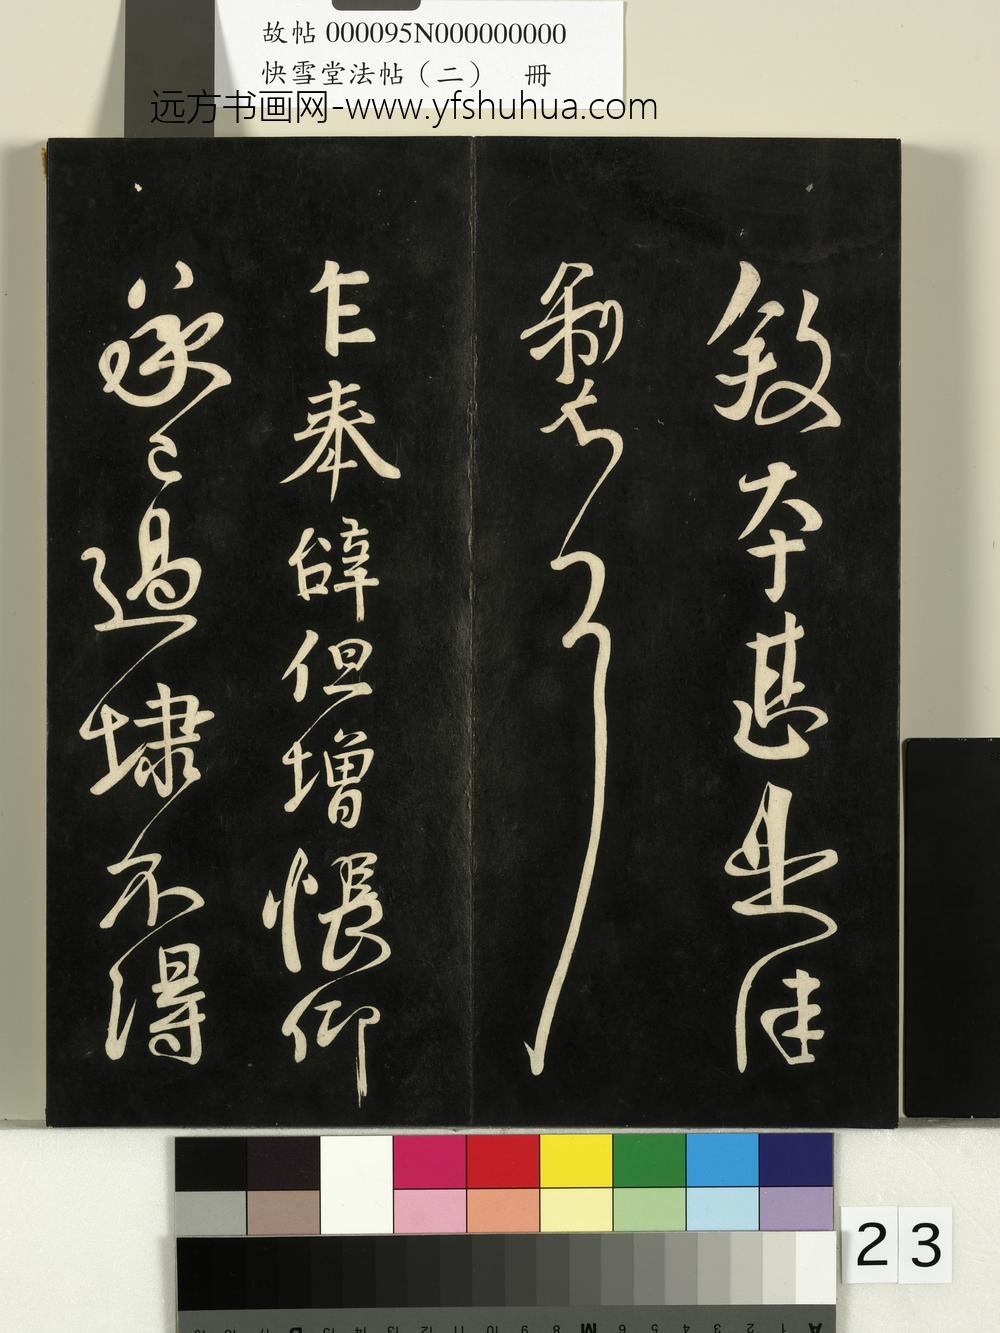 故帖 000095N000000000
快雪堂法帖（二）　冊
远方书画网-www.yfshuhua.com
本甚是佳
制
乍奉辭但增悵仰
承已過埭不得
23